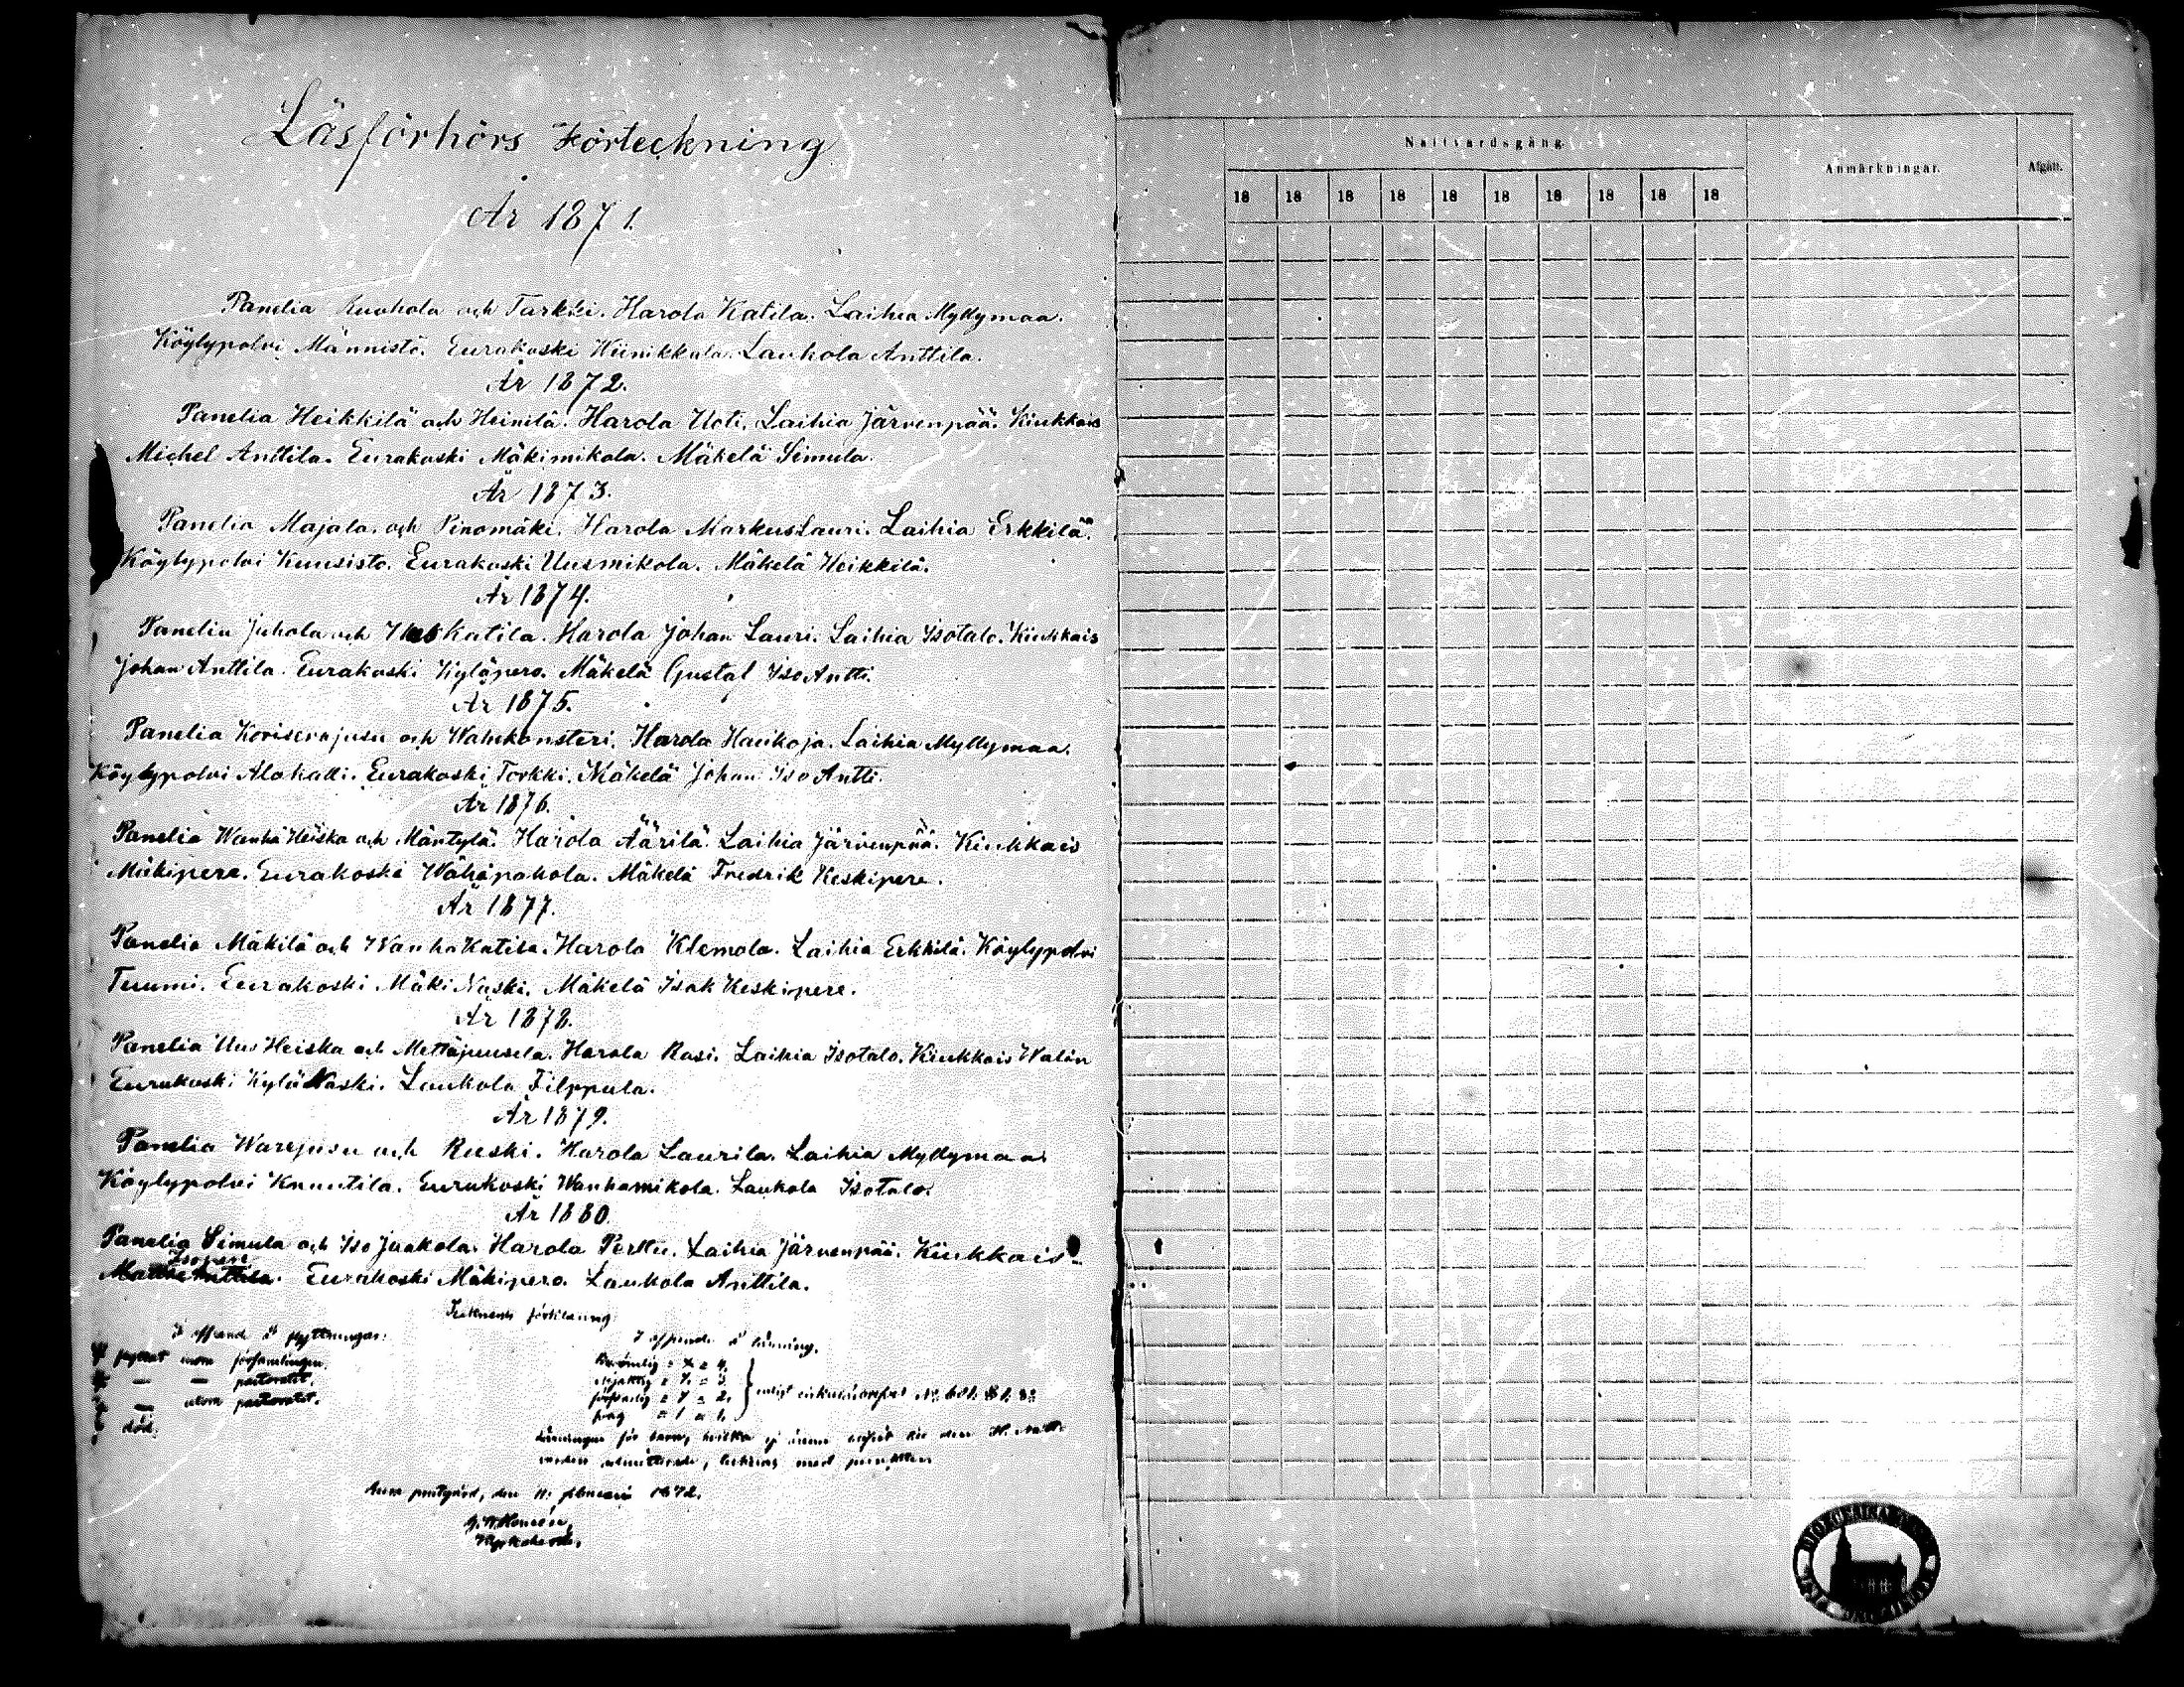 Läsförhörs Förteckning
År 1871.
Panelia Ruohola och Tarkki. Harola Katila. Laihia Myllymaa.
Köylypolvi Männistö. Eurakoski Hiinikkala. Laukola Anttila.
År 1872.
Panelia Heikkilä och Heinilä. Harola Uoti. Laihia Järvenpää. Kiukkais
Michel Anttila. Eurakoski Mäkimikola. Mäkelä Simula.
År 1873.
Panelia Majala och Pinomäki. Harola MarkusLauri. Laihia Erkkilä.
Köylypolvi Kuusisto. Eurakoski Uusmikola. Mäkelä Heikkilä.
År 1874.
Panelia Juhola och Katila. Harola Johan Lauri. Laihia Isotalo. Kiukkais
Johan Anttila. Eurakoski Kyläpero. Mäkelä Gustaf IsoAntti.
År 1875.
Panelia och Harola Haukoja. Laihia Myllymaa.
Köylypolvi Alakalli. Eurakoski Torkki. Mäkelä Johan IsoAntti.
År 1876.
Panelia Wanha Heiska och Mäntylä. Harola Äärilä. Laihia Järvenpää. Kiukkais
Mäkipere. Eurakoski Wähäpahola. Mäkelä Fredrik Keskipere.
År 1877.
Panelia Mäkilä och WanhaKatila. Harola Klemola. Laihia Erkkilä. Köylypolvi
Tuumi. Eurakoski MäkiNaski. Mäkelä Isak Keskipere.
År 1878.
Panelia Uus Heiska och Mettäjuusela. Harola Rasi. Laihia Isotalo. Kiukkais Walin
Eurakoski KyläNaski. Laukola Filppula.
År 1879.
Panelia Warejusu och Ruski. Harola Laurila. Laihia Myllymaa.
Köylypolvi Knuutila. Eurakoski Wanhamikola. Laukola Isotalo.
År 1880.
Panelia Simula och Iso Jaakola. Harola Perttu. Laihia Järvenpää. Kiukkais
Isopere
Eurakoski Mäkipero. Laukola Anttila.
Teknens förklaring
I afseende å flyttningar:
I afseende å läsning.
flyttat inom församlingen.
— — pastoratet.
— utom pastoratet.
död.
Berömlig = X = 4.
= 3.
= 2.
svag = 1 = 1.
enligt
för barn, hvilka ej ännu
med punkter
den 11 1872.
Nattvardsgång.
Anmärkningar.
Afgått.
18 18 18 18 18 18 18 18 18 18